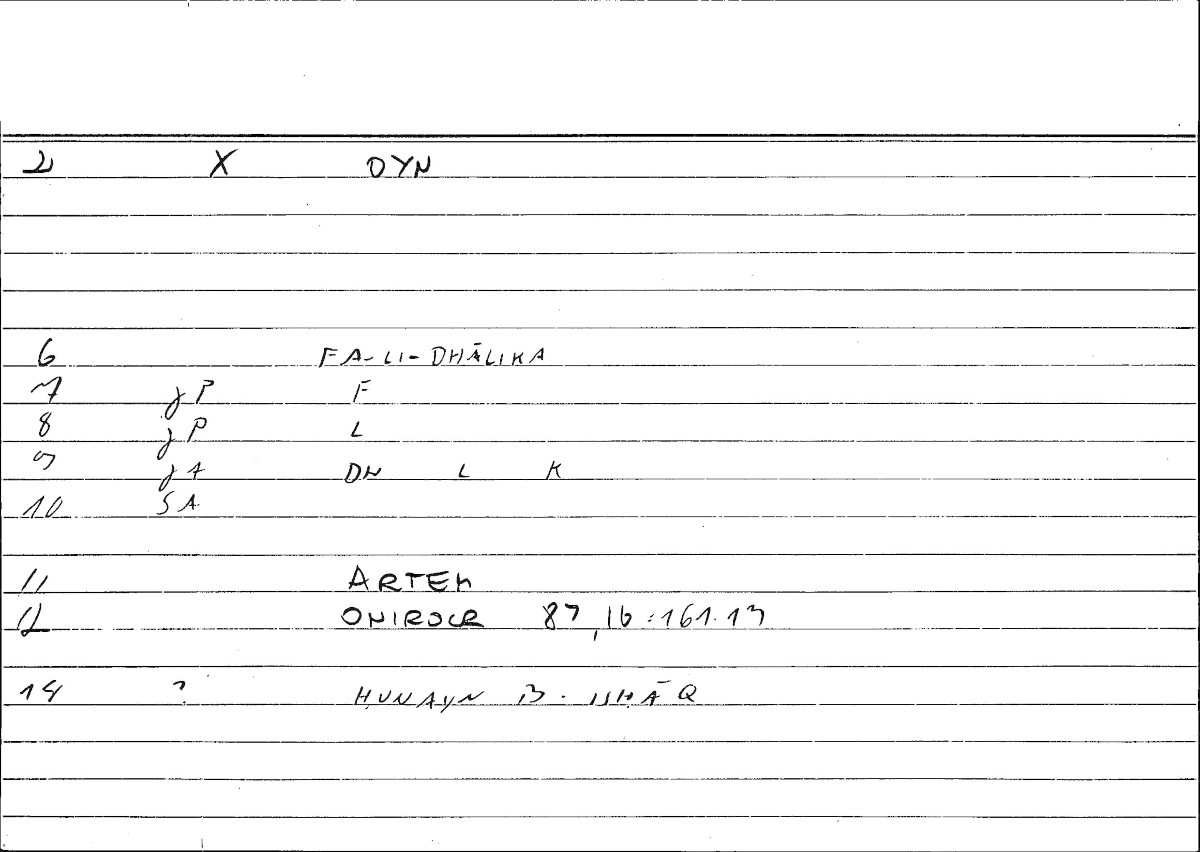 2 X OYN
6 FA-LI-DHĀLIKA
7 jP F
8 jP L
9 jA DN L K
10 SA
11 ARTEM
12 ONIROCR 87,16:161.13
14 ? ḤUNAYN B. ISḤĀQ